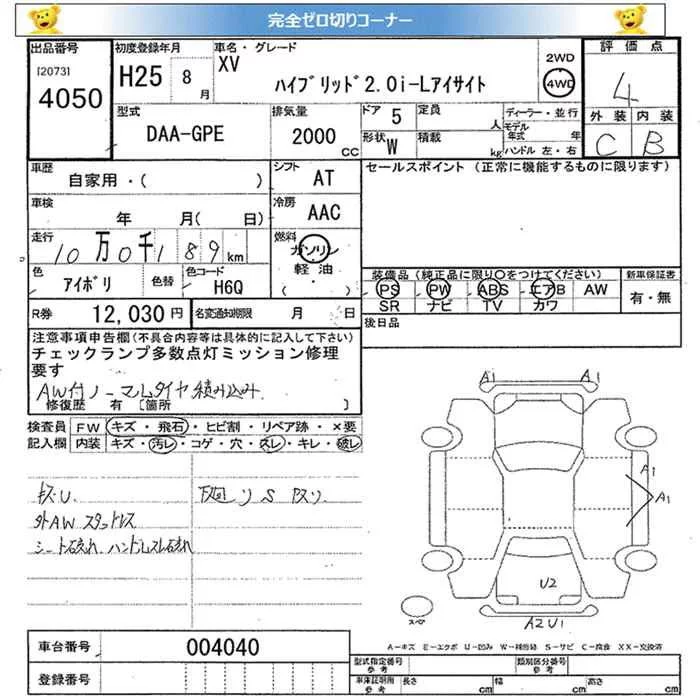 完全ゼロ切りコーナー
出品番号
[2073]
4050
初度登録年月
H25 8月
車名・グレード
XV
ハイブリッド2.0i-Lアイサイト
2WD
4WD
評価点
4
外装 内装
C B
型式
DAA-GPE
排気量
2000 CC
ドア 5
定員 人
形状 W
積載 kg
ディーラー・並行
モデル年式 年
ハンドル 左・右
車歴
自家用・( )
シフト AT
セールスポイント (正常に機能するものに限ります)
車検
年 月( 日)
冷房 AAC
走行
10万0千189km
燃料
ガソリン
軽油・
( )
色 アイボリ
色替
色コード H6Q
装備品 (純正品に限り○をつけてください)
新車保証書
PS PW ABS エアB AW
SR ナビ TV カワ
有・無
R券 12,030円
名変通知期限 月 日
後日品
注意事項申告欄(不具合内容等は具体的に記入して下さい)
チェックランプ多数点灯ミッション修理
要す
AW付ノーマルタイヤ積み込み.
修復歴 有 [箇所 ]
検査員 FW キズ・飛石・ヒビ割・リペア跡・×要
記入欄 内装 キズ・汚レ・コゲ・穴・スレ・キレ・破レ
キズU.
下廻り S
外AW スタッドレス
A1 A1
A1
A1
U2
A2U1
スペア
A-キズ E-エクボ U-凹み W-補修跡 S-サビ C-腐食 XX-交換済
車台番号 004040
登録番号
型式指定番号 参考
類別区分番号 参考
車庫証明用 参考
長さ cm 幅 cm 高さ cm